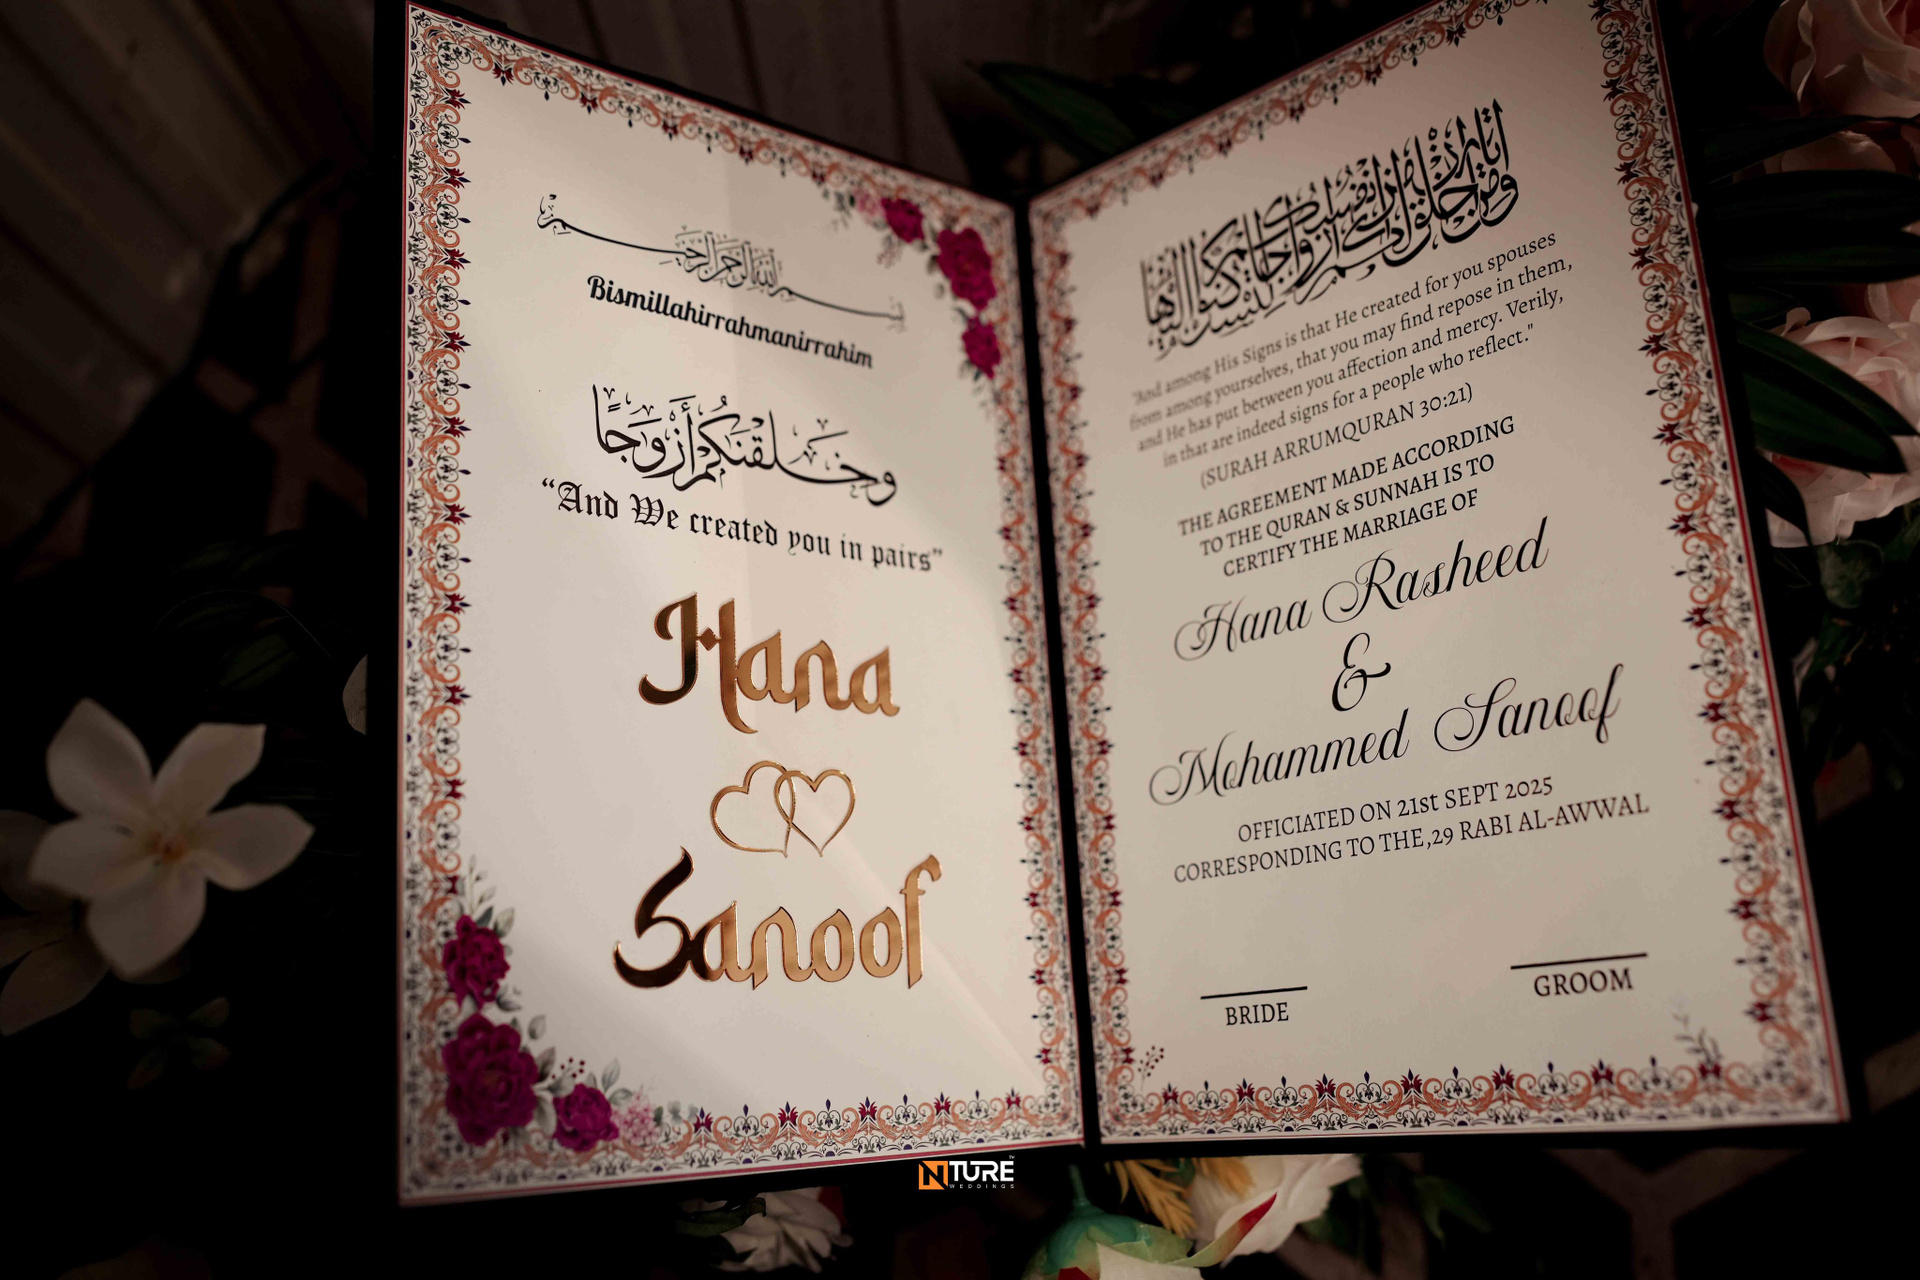 بسم الله الرحمن الرحيم
Bismillahirrahmanirrahim
وَخَلَقْنَكُمْ أَزْوَجًا
“And We created you in pairs”
Hana
Sanoof
ومن آياته أن خلق لكم من أنفسكم أزواجا لتسكنوا إليها
"And among His Signs is that He created for you spouses
from among yourselves, that you may find repose in them,
and He has put between you affection and mercy. Verily,
in that are indeed signs for a people who reflect."
(SURAH ARRUMQURAN 30:21)
THE AGREEMENT MADE ACCORDING
TO THE QURAN & SUNNAH IS TO
CERTIFY THE MARRIAGE OF
Hana Rasheed
&
Mohammed Sanoof
OFFICIATED ON 21st SEPT 2025
CORRESPONDING TO THE,29 RABI AL-AWWAL
BRIDE
GROOM
NTURE
WEDDINGS